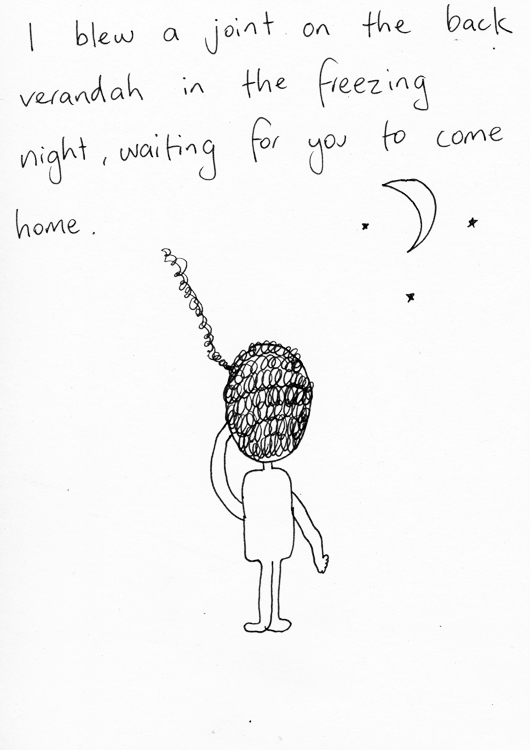 I blew a joint on the back
verandah in the freezing
night, waiting for you to come
home.